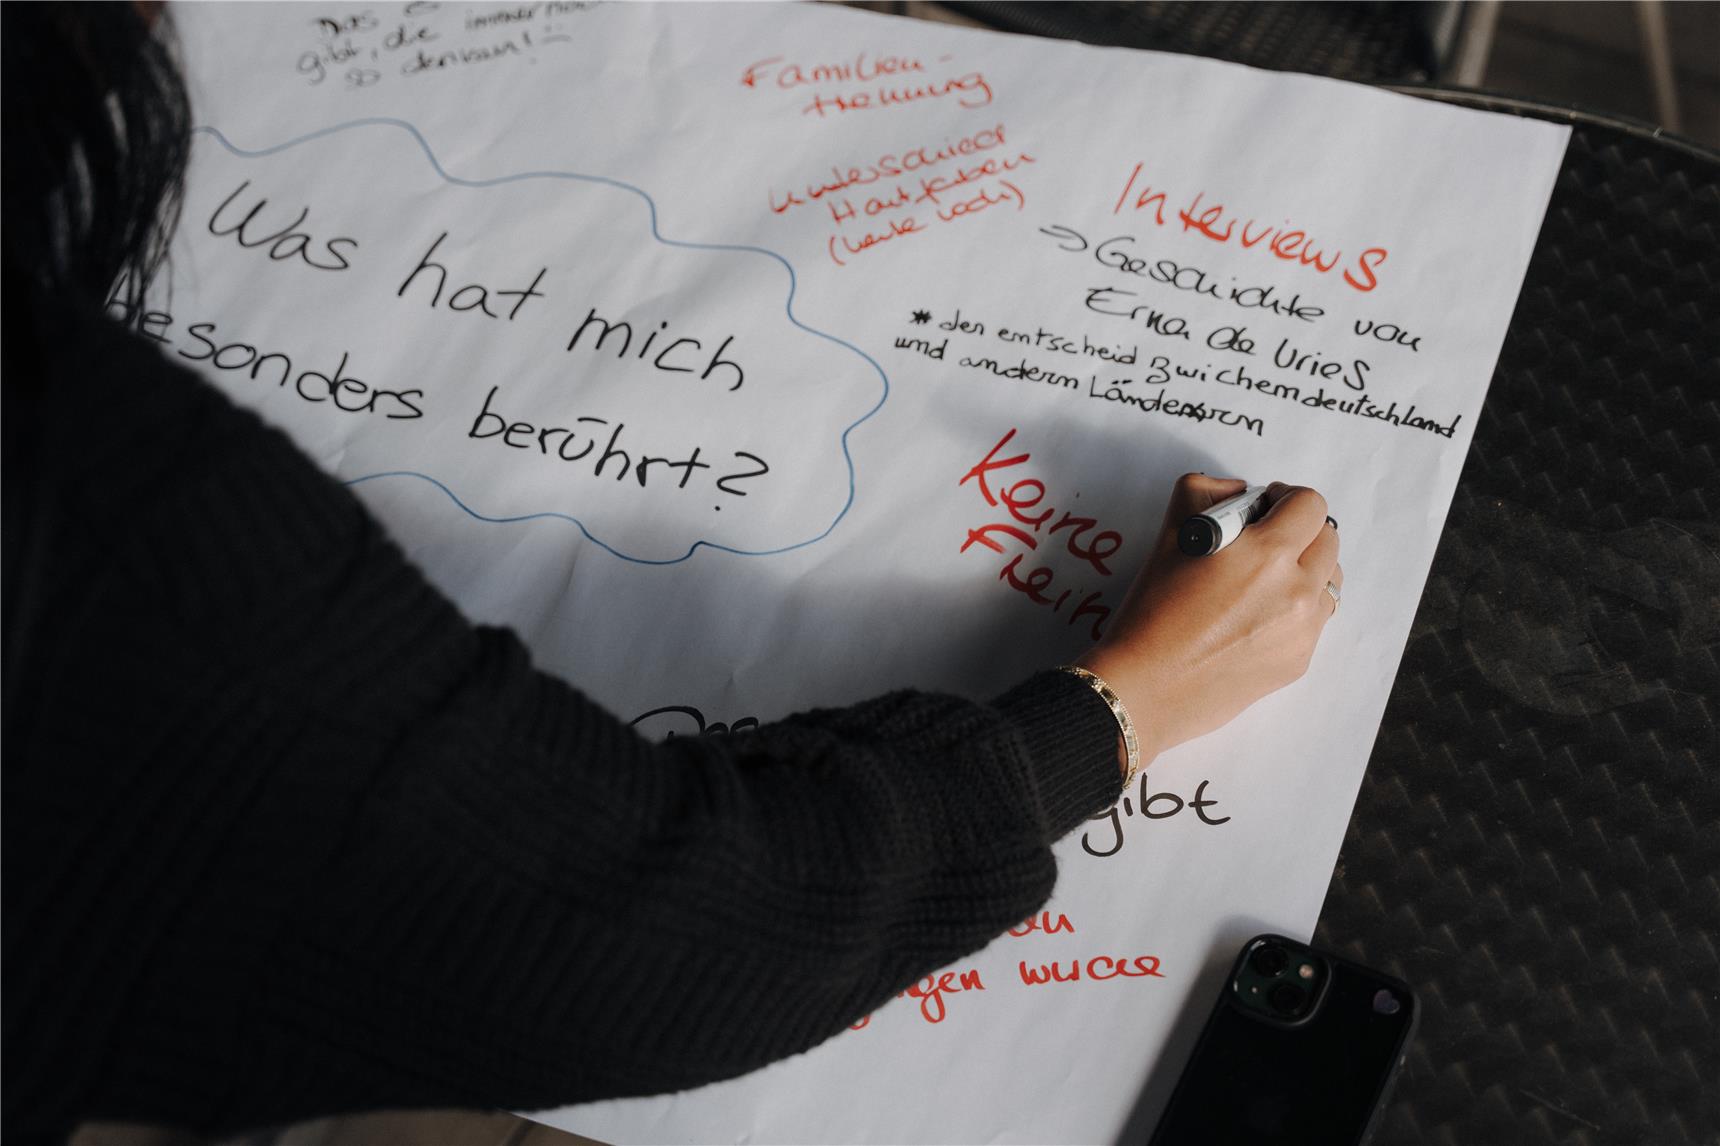 Das es
gibt, die immer noch
so denken!
Familien-
trennung
Unterschied
Hautfarben
(heute noch)
Was hat mich
besonders berührt?
Interviews
=> Geschichte von
Erna de Vries
* den entscheid zwichen deutschland
und andern Ländern
Keine
Frein
Das
gibt
en
ngen wurde